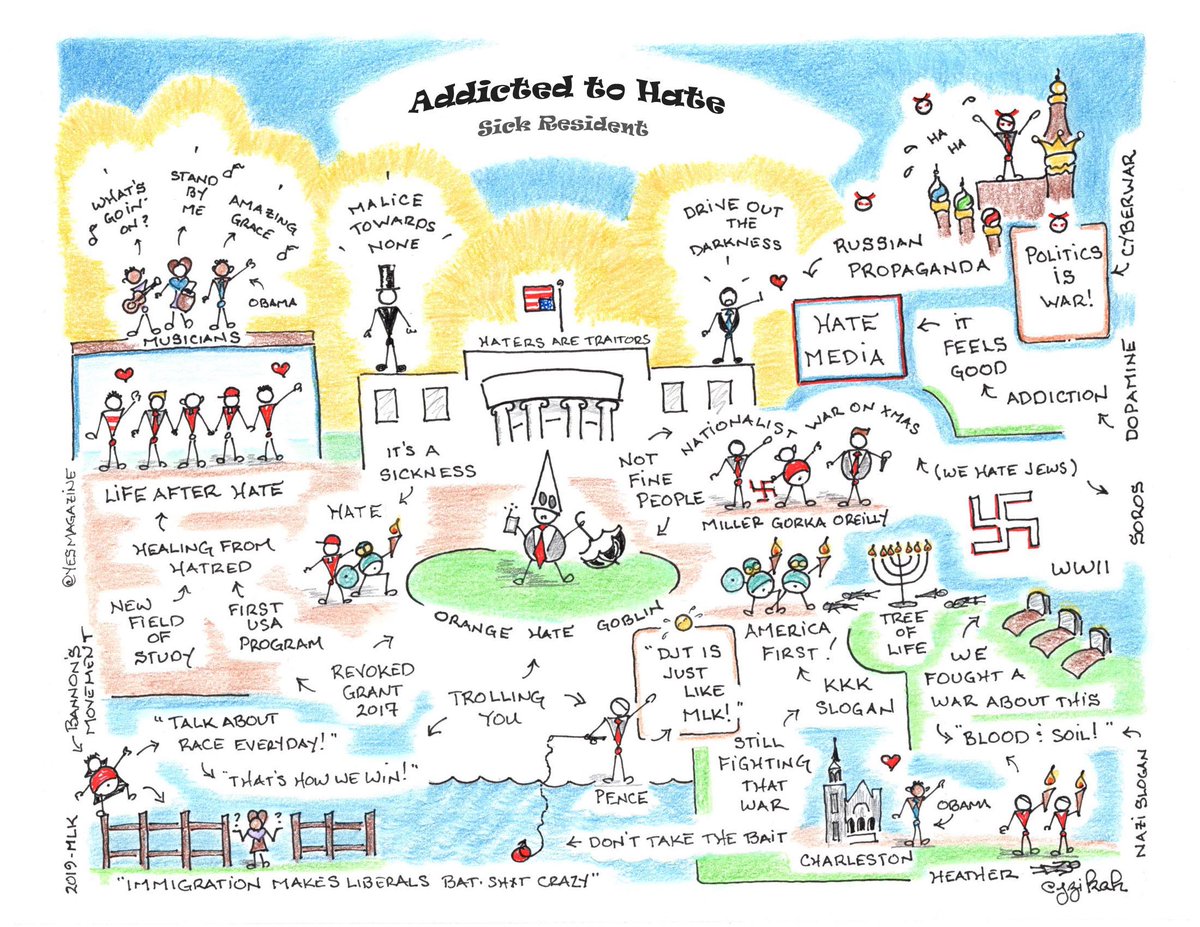 Addicted to Hate
Sick Resident
WHAT'S
GOIN'
ON?
STAND
BY
ME
AMAZING
GRACE
OBAMA
MUSICIANS
MALICE
TOWARDS
NONE
DRIVE OUT
THE
DARKNESS
HA
HA
RUSSIAN
PROPAGANDA
POLITICS
IS
WAR!
CYBERWAR
HATERS ARE TRAITORS
HATE
MEDIA
IT
FEELS
GOOD
ADDICTION
DOPAMINE
LIFE AFTER HATE
IT'S A
SICKNESS
HATE
NOT
FINE
PEOPLE
NATIONALIST WAR ON XMAS
MILLER GORKA OREILLY
(WE HATE JEWS)
SOROS
WWII
@YESMAGAZINE
HEALING FROM
HATRED
NEW
FIELD
OF
STUDY
FIRST
USA
PROGRAM
REVOKED
GRANT
2017
ORANGE HATE GOBLIN
TROLLING
YOU
"DJT IS
JUST
LIKE
MLK!"
AMERICA
FIRST!
TREE
OF
LIFE
KKK
SLOGAN
WE
FOUGHT A
WAR ABOUT THIS
"BLOOD & SOIL!"
NAZI SLOGAN
BANNON'S
MOVEMENT
"TALK ABOUT
RACE EVERYDAY!"
"THAT'S HOW WE WIN!"
PENCE
STILL
FIGHTING
THAT
WAR
DON'T TAKE THE BAIT
CHARLESTON
OBAMA
HEATHER
? ?
"IMMIGRATION MAKES LIBERALS BAT·SH*T CRAZY"
2019-MLK
cyzikah